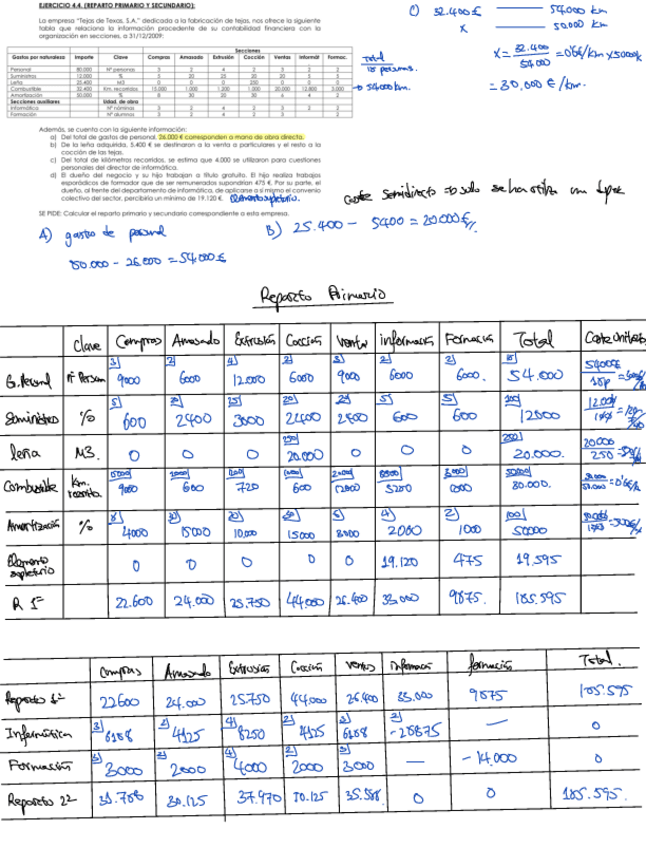 EJERCICIO 4.4. (REPARTO PRIMARIO Y SECUNDARIO):
La empresa "Tejas de Texas, S.A." dedicada a la fabricación de tejas, nos ofrece la siguiente
tabla que relaciona la información procedente de su contabilidad financiera con la
organización en secciones, a 31/12/2009:
Secciones
Gastos por naturaleza Importe Clave Compras Amasado Extrusión Cocción Ventas Informát Formac.
Personal 80.000 Nº personas 3 2 4 2 3 2 2
Suministros 12.000 % 5 20 25 20 20 5 5
Leña 25.400 M3 0 0 0 250 0 0 0
Combustible 32.400 Km. recorridos 15.000 1.000 1.200 1.000 20.000 12.800 3.000
Amortización 50.000 % 8 30 20 30 6 4 2
Secciones auxiliares Unidad. de obra
Informática Nº nóminas 3 2 4 2 3 2 2
Formación Nº alumnos 3 2 4 2 3 2
Además, se cuenta con la siguiente información:
a) Del total de gastos de personal, 26.000 € corresponden a mano de obra directa.
b) De la leña adquirida, 5.400 € se destinaron a la venta a particulares y el resto a la
cocción de las tejas.
c) Del total de kilómetros recorridos, se estima que 4.000 se utilizaron para cuestiones
personales del director de informática.
d) El dueño del negocio y su hijo trabajan a título gratuito. El hijo realiza trabajos
esporádicos de formador que de ser remunerados supondrían 475 €. Por su parte, el
dueño, al frente del departamento de informática, de aplicarse a sí mismo el convenio
colectivo del sector, percibiría un mínimo de 19.120 €.
SE PIDE: Calcular el reparto primario y secundario correspondiente a esta empresa.
C) 32.400 € 54.000 km
x 50.000 km
x = 32.400 / 54.000 = 0'6 €/km x 50000 k
= 30.000 €/km.
Total / 18 personas.
→ 54000 km.
A) gastos de personal
80.000 - 26.000 = 54.000 €
B) 25.400 - 5400 = 20000 €//
Reparto Primario
Clave Compras Amasado Extrusión Cocción Ventas información Formación Total Coste Unitario
G. Personal nº Person 3 9000 2 6000 4 12.000 2 6000 3 9000 2 6000 2 6000. 18 54.000
Suministros % 5 600 20 2400 25 3000 20 2400 20 2400 5 600 5 600 100 12000
leña M3. 0 0 0 250 20.000 0 0 0 250 20.000. 20000 / 250
Combustible Km. recorrido 15000 9000 1000 600 1200 720 1000 600 20000 12000 8800 5280 3000 50000 30.000.
Amortización % 8 4000 30 15000 20 10.000 30 15000 6 3000 4 2000 2 1000 100 50000
Elemento supletorio 0 0 0 0 0 19.120 475 19.595
R 1º 22.600 24.000 25.750 44.000 26.400 33.000 9875. 185.595
Compras Amasado Extrusión Cocción Ventas Informacio formación Total.
Reparto 1º 22600 24.000 25.750 44.000 26.400 33.000 9875 185.595
Informática 3 6188 2 4125 4 8250 2 4125 3 6188 2 -28875 — 0
Formación 3 3000 2 2000 4 4000 2 2000 3 3000 — -14.000 0
Reparto 2º 31.788 30.125 37.970 50.125 35.588 0 0 185.595.